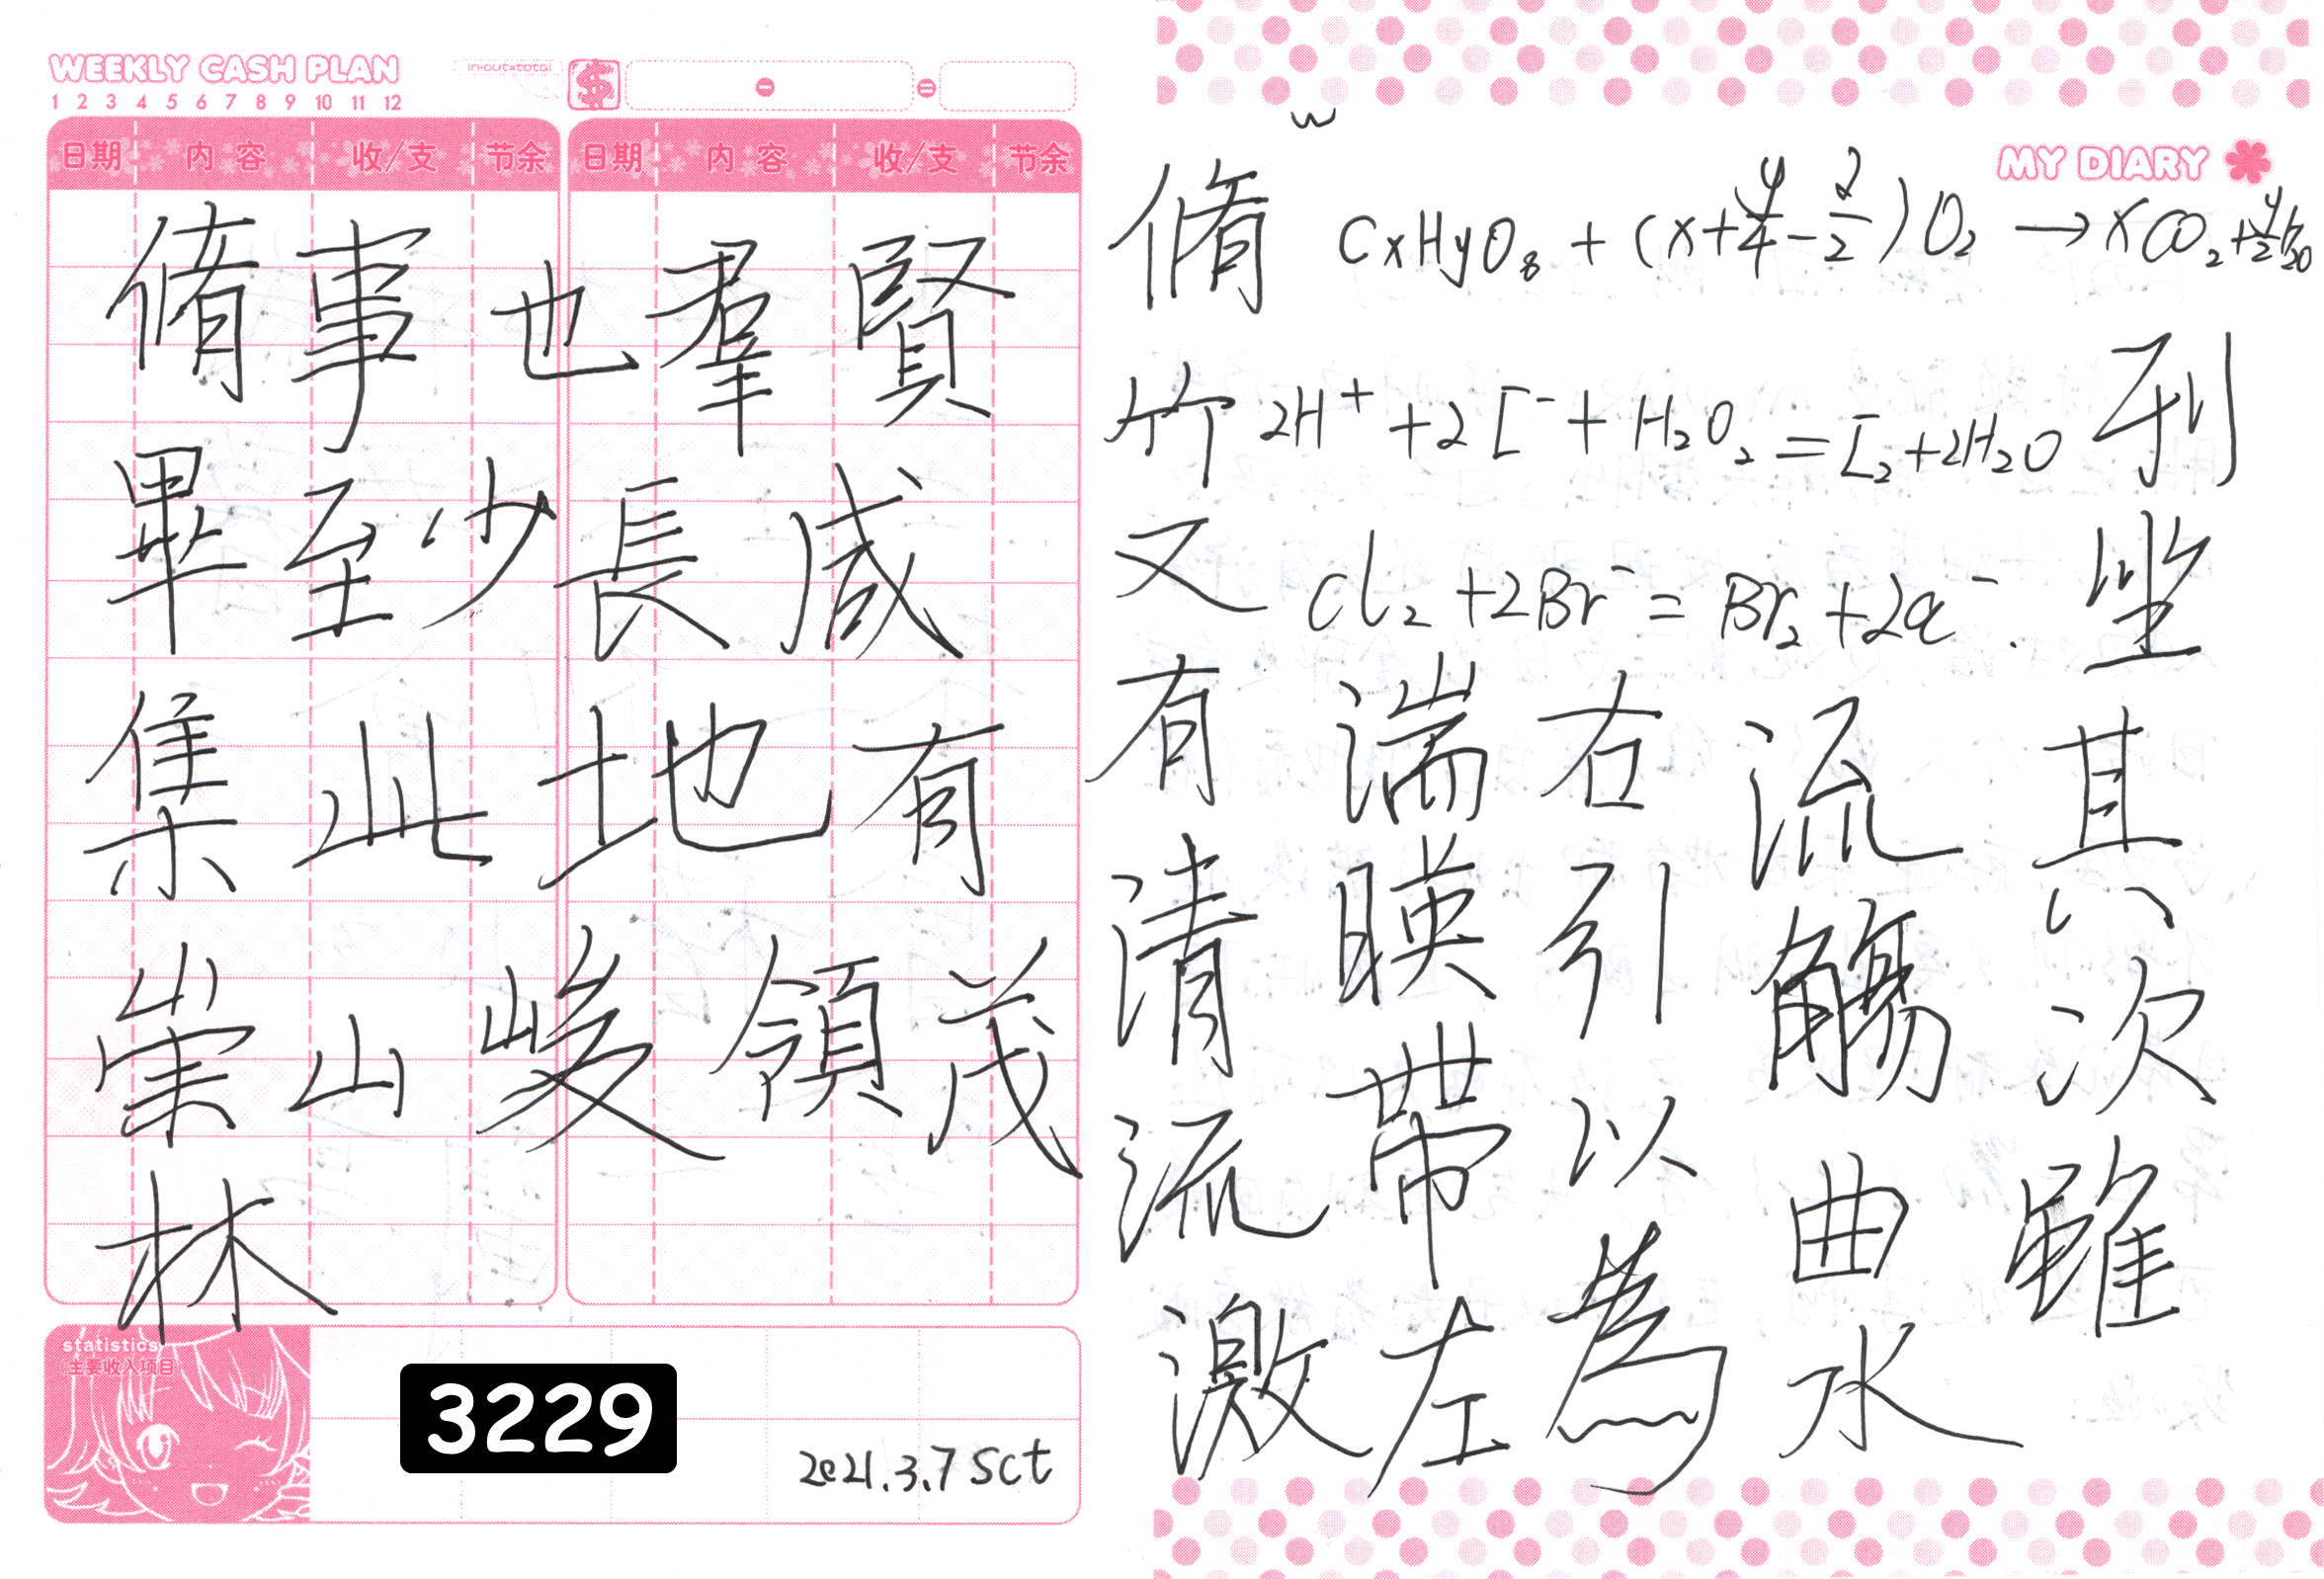 WEEKLY CASH PLAN
1 2 3 4 5 6 7 8 9 10 11 12
in-out=total
日期 内容 收/支 节余 日期 内容 收/支 节余
脩事也羣賢
畢至少長咸
集此地有
崇山峻領茂
林
statistics
(主要收入项目)
3229
2021.3.7 sct
w
MY DIARY
脩 CxHyO₈ + (x+y/4-2/2)O₂ → xCO₂+y/2H₂O
竹 2H⁺+2I⁻+H₂O₂=I₂+2H₂O 列
又 Cl₂+2Br⁻=Br₂+2Cl⁻. 坐
有湍右流其
清暎引觴次
流帶以曲雖
激左為水